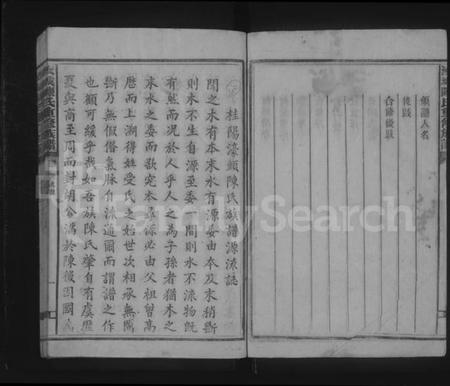 領譜人名
後跋
合修後跋
桂陽濠頭陳氏族譜源流誌
聞之木有本末水有源委由本及末稍斷
則木不生由源委一間則水不流物旣
有然而况於人乎人之為子孫者猶木之
末水之委而欲究本尋源必由父祖曾高
歷而上溯得姓受氏之始世次相承無隔
斷乃無假借氣脉自流通爾而謂譜之作
也顧可緩乎哉如吾族陳氏肇自有虞歷
夏與商至周而封胡公滿於陳後因國為
FamilySearch